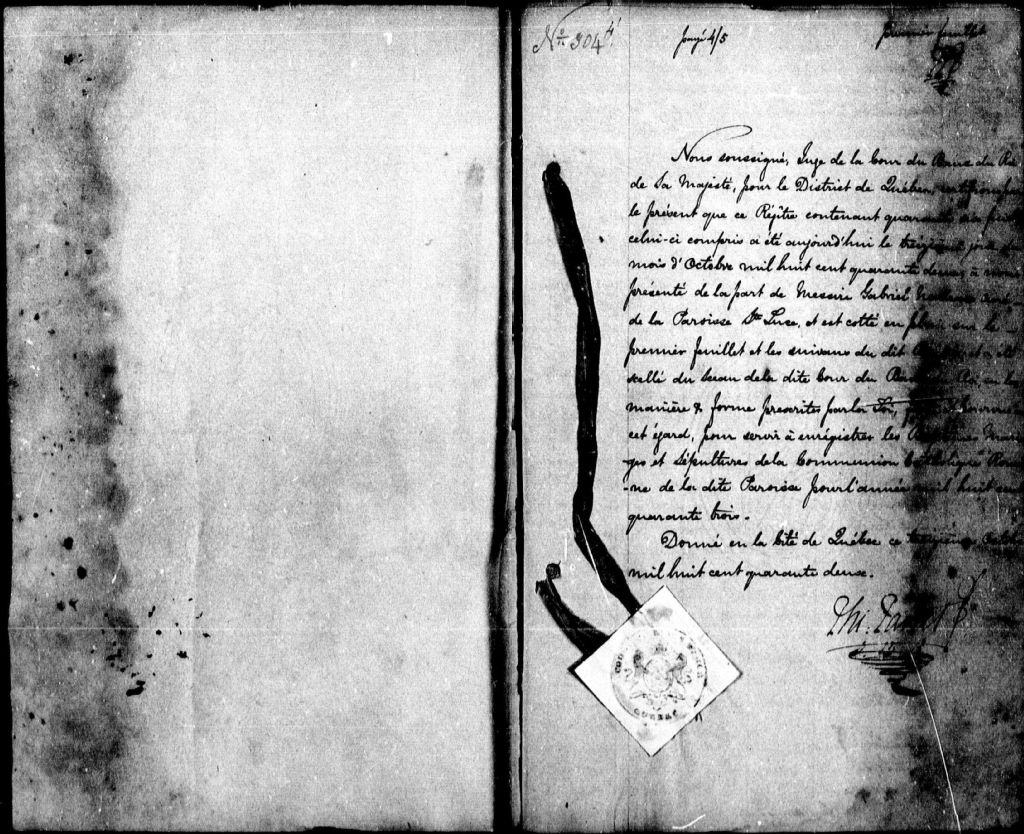 No. 304
Premier feuillet
Nous soussigné, Juge de la Cour du Banc du
de Sa Majesté, pour le District de Québec, certifions
le présent que ce Régître contenant quarante
celui-ci compris a été aujourd'hui le treizième jour du
mois d'Octobre mil huit cent quarante deux, à nous
présenté de la part de Messire Gabriel
de la Paroisse Ste. Luce, et est cotté en plein sur le
premier feuillet et les suivans du dit et a été
scellé du sceau de la dite Cour du Banc en la
manière & forme prescrites par la Loi,
cet égard, pour servir à enrégistrer les Maria-
-ges et Sépultures de la Communion Catholique Romai-
-ne de la dite Paroisse pour l'année mil huit cent
quarante trois.
Donné en la Cité de Québec ce treizième Octobre
mil huit cent quarante deux.
QUEBEC